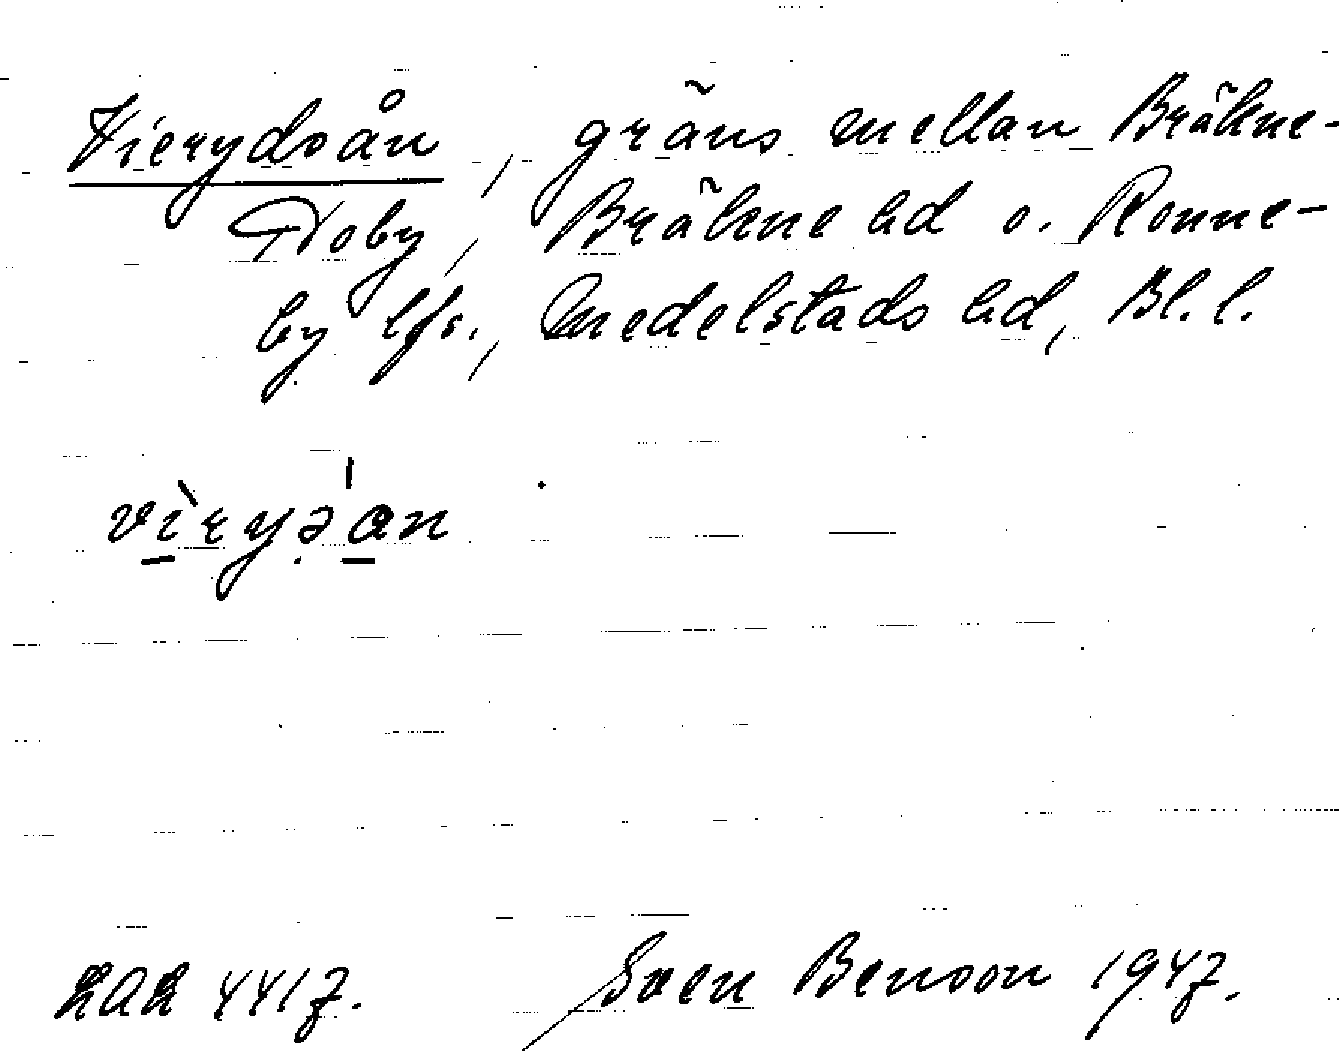 Vierydsån, gräns mellan Bräkne-
Hoby, Bräkne hd o. Ronne-
by lfs., Medelstads hd, Bl. l.
vìryə'an
LAL 4417. Sven Benson 1947.